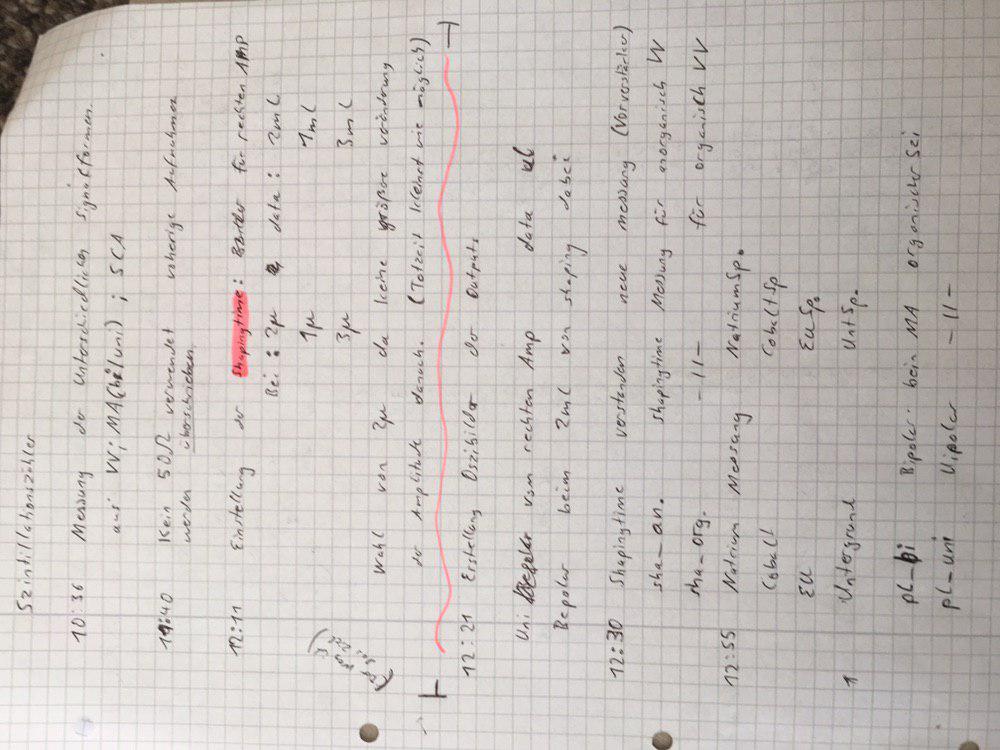 Szintillationszähler
10:36 Messung der Unterschiedlichen Signalformen.
aus VV; MA(bi/uni) ; SCA
11:40 Kein 50Ω verwendet vorherige Aufnahmen
werden überschrieben.
12:11 Einstellung der Shapingtime: für rechten AMP
Bei : 2μ data : 2ml
1μ 1ml
3μ 3ml
(Der Weg ist
das Ziel)
Wahl von 2μ da keine größere veränderung
der Amplitude danach. (Totzeit kleinst wie möglich)
12:21 Erstellung Oszibilder der Outputs
Uni vom rechten Amp data ul
Bepolar beim 2ml von shaping dabei
12:30 Shapingtime verstanden neue messung (Vorverstärker)
sha_an. shapingtime Messung für anorganisch VV
sha_org. -11- für organisch VV
12:55 Natrium Messung NatriumSp.
Cobalt CobaltSp
EU EuSp.
1 Untergrund UntSp.
pl_bi Bipolar bein MA organischer Szi
pl_uni Uipolar -11-